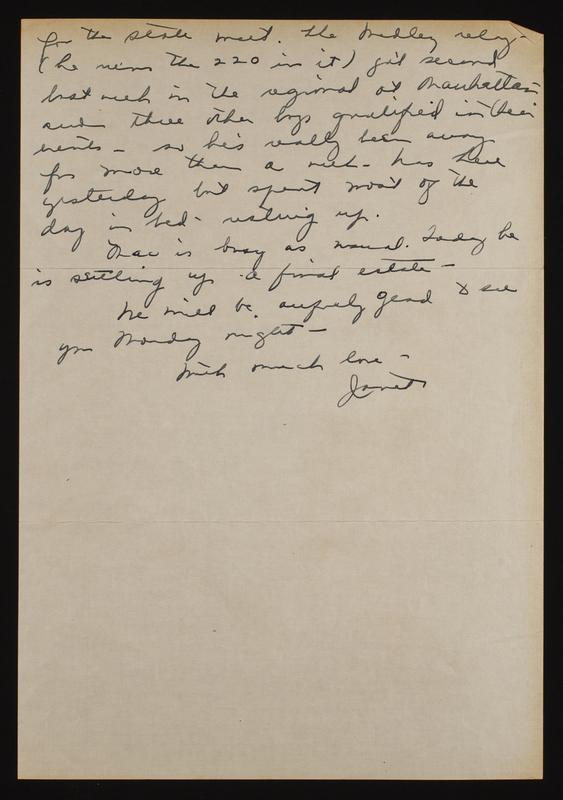 for the state meet. The Medley relay -
(he runs the 220 in it) got second
last week in the regional at Manhattan
and three other boys qualified in their
events - so he's really been away
for more than a week - was here
yesterday but spent most of the
day in bed - resting up.
Mac is busy as usual. Today he
is settling up a final estate -
We will be awfully glad to see
you Monday night -
With much love -
Janet